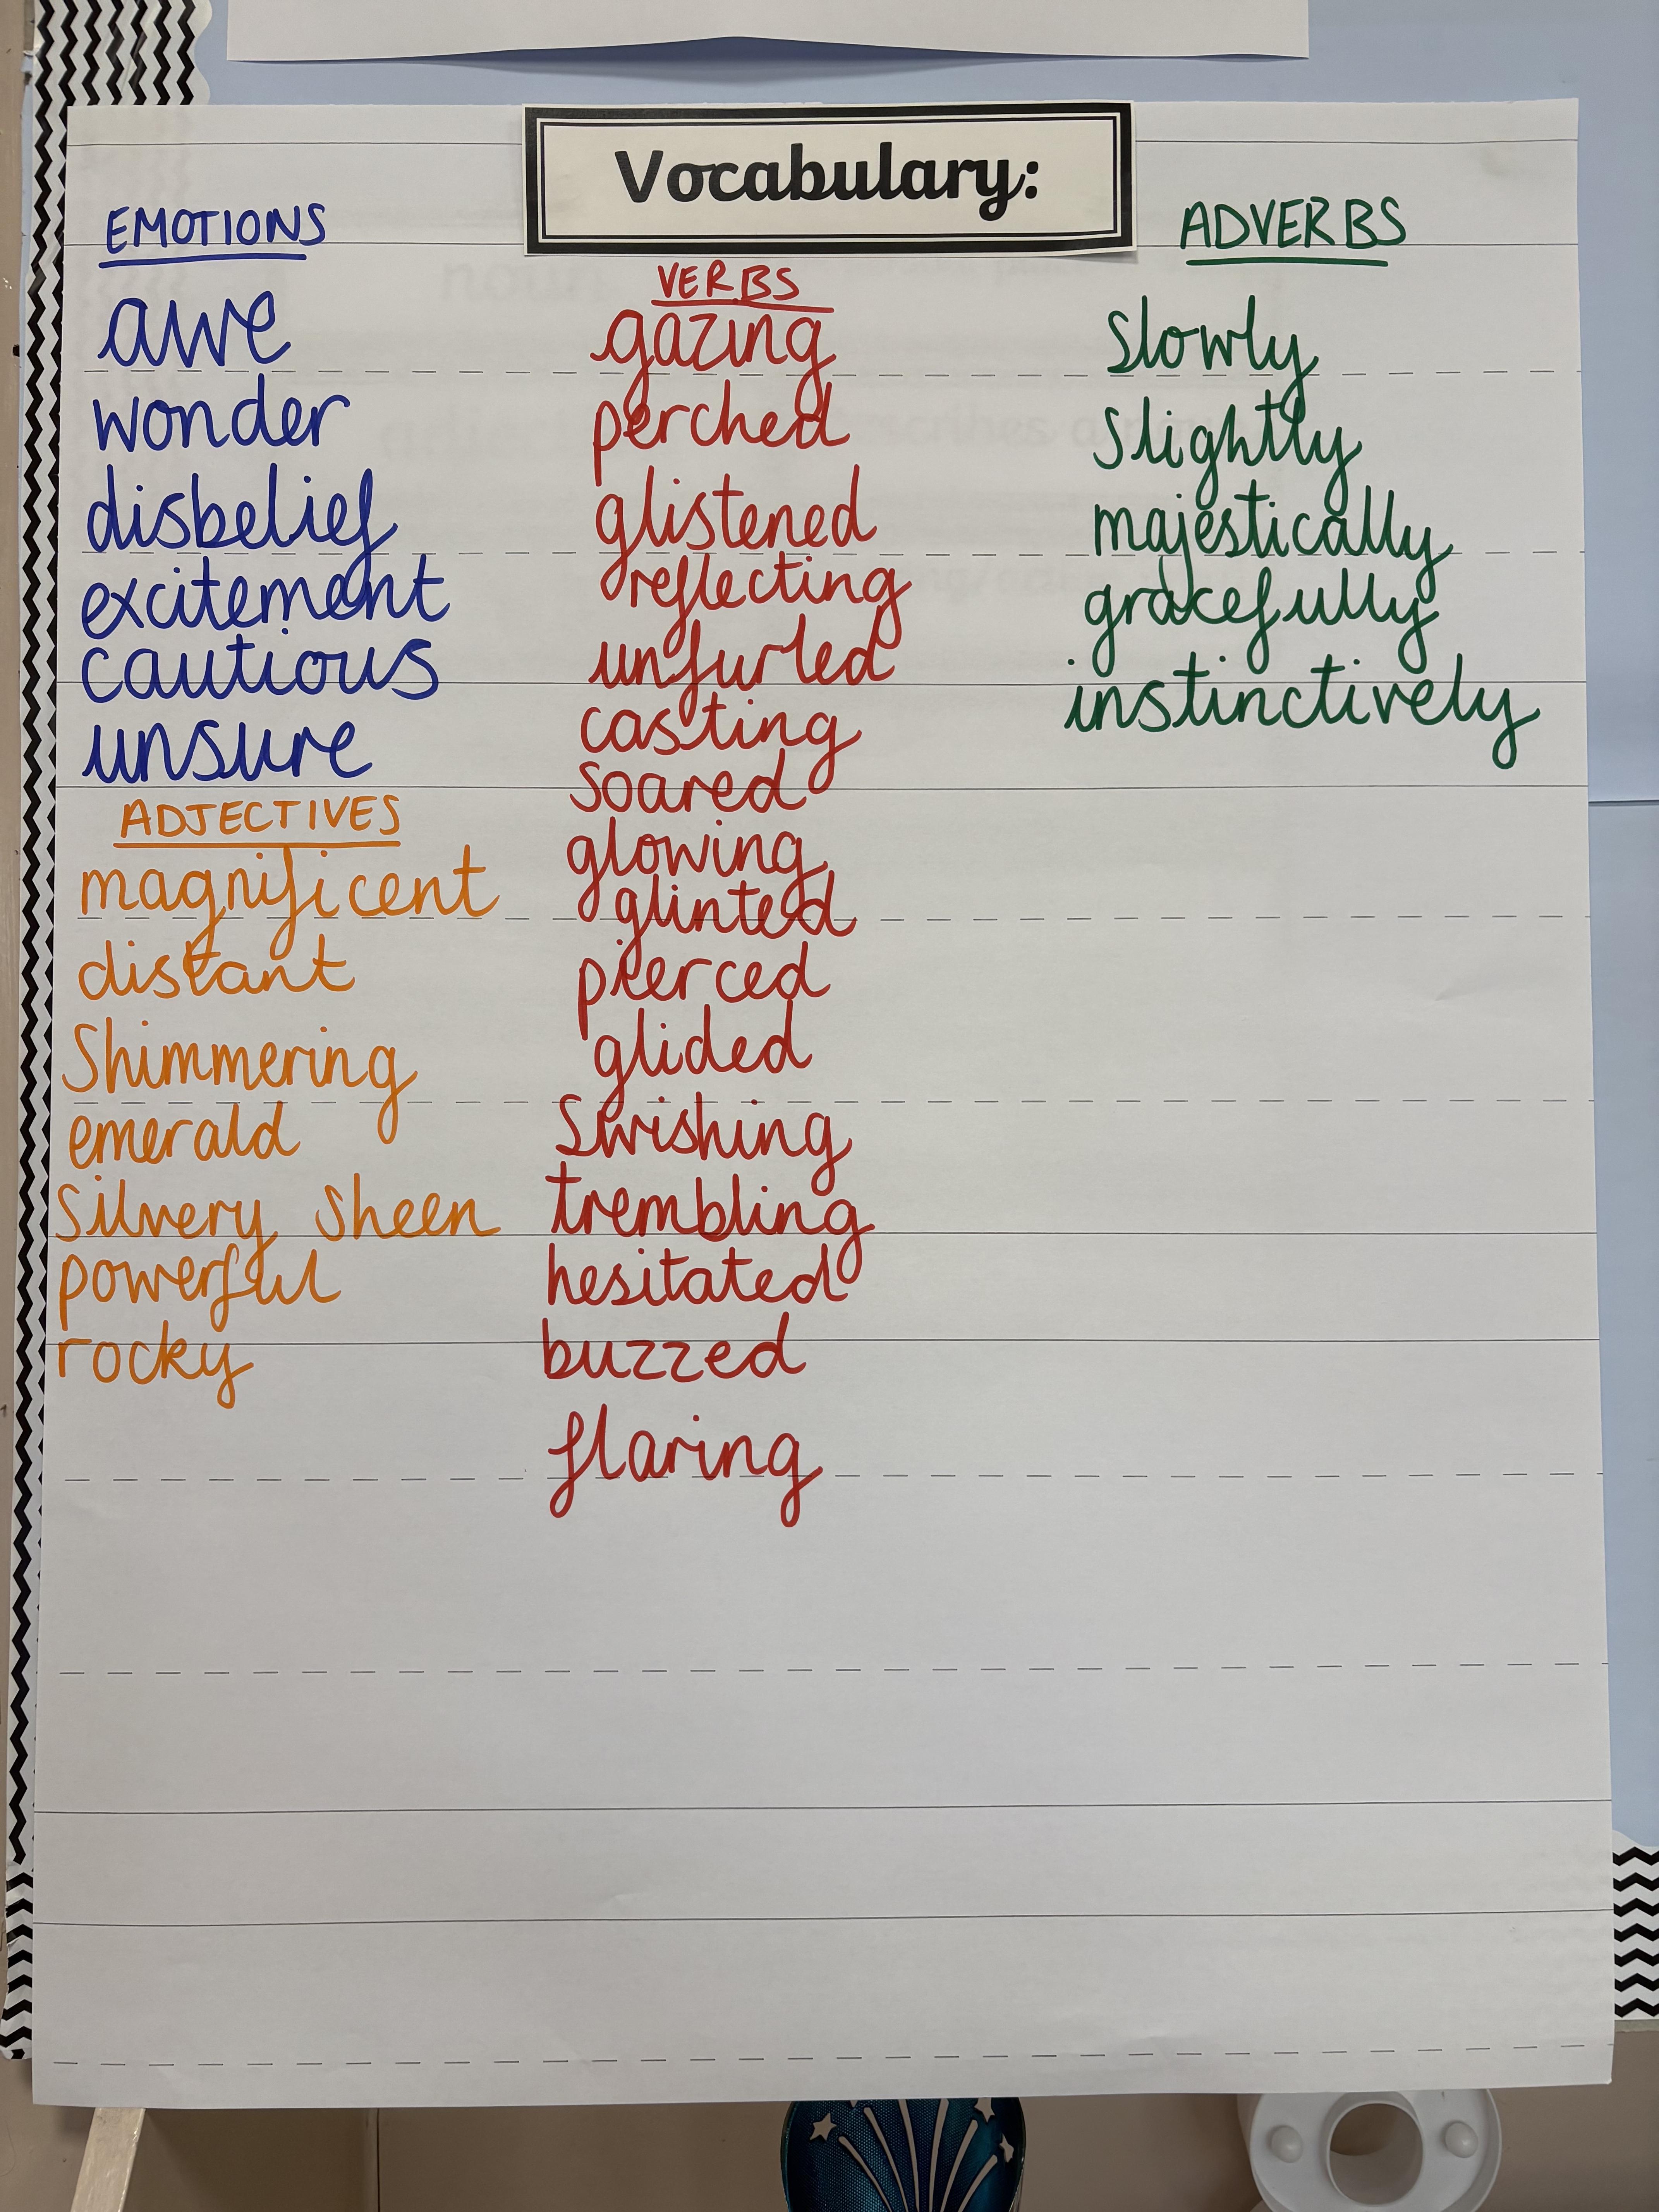 Vocabulary:
EMOTIONS
awe
wonder
disbelief
excitement
cautious
unsure
ADJECTIVES
magnificent
distant
Shimmering
emerald
Silvery Sheen
powerful
rocky
VERBS
gazing
perched
glistened
reflecting
unfurled
casting
soared
glowing
glinted
pierced
glided
Swishing
trembling
hesitated
buzzed
flaring
ADVERBS
Slowly
Slightly
majestically
gracefully
instinctively